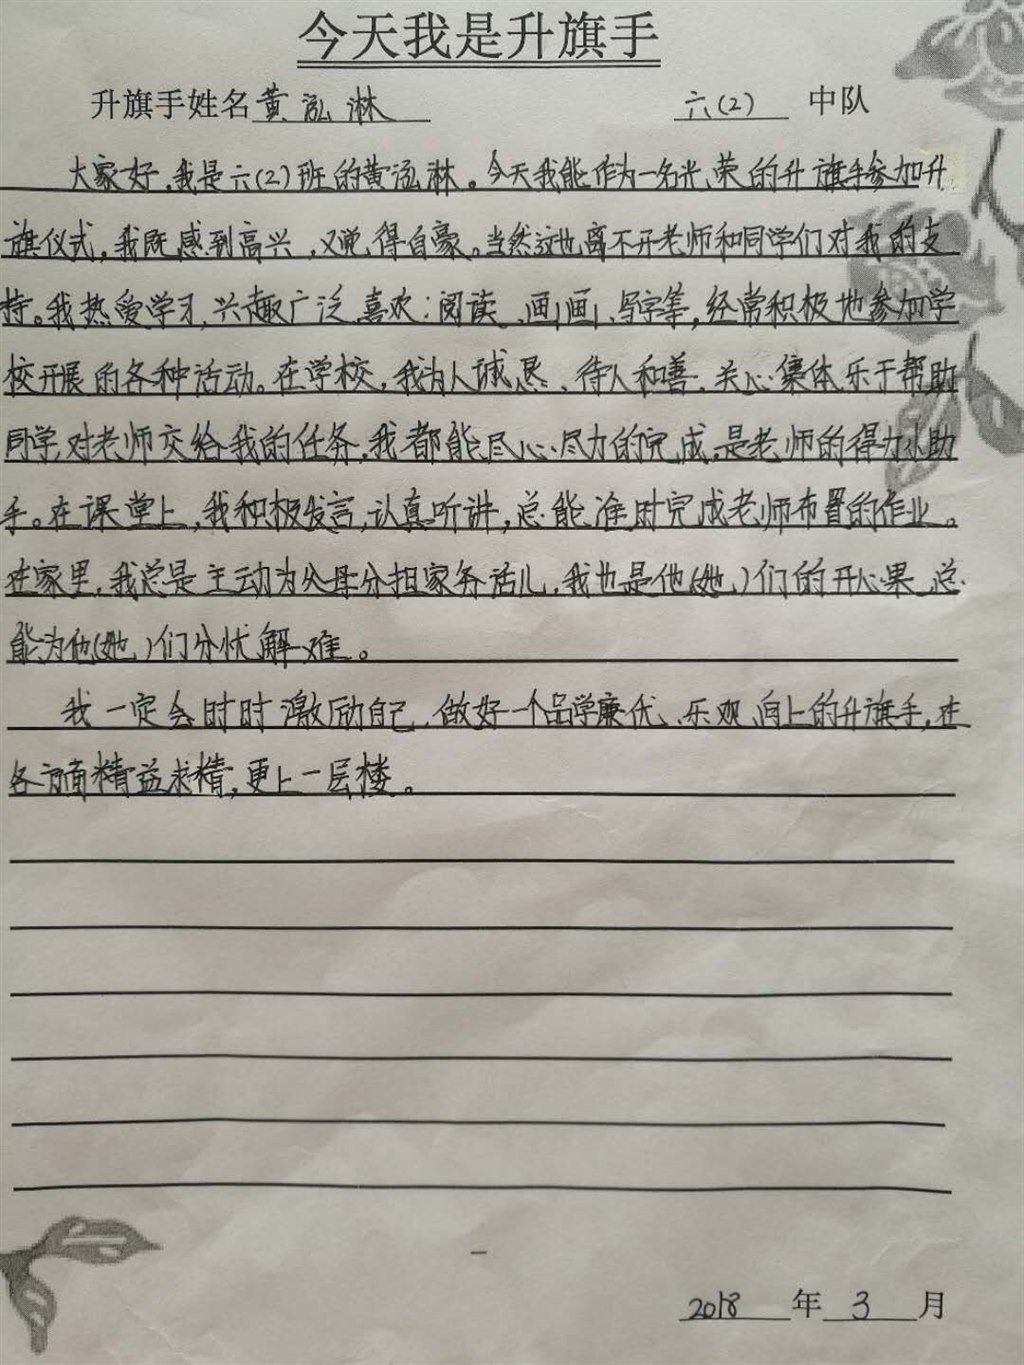 今天我是升旗手
升旗手姓名黄泓淋 六(2) 中队
大家好,我是六(2)班的黄泓淋。今天我能作为一名光荣的升旗手参加升
旗仪式,我既感到高兴,又觉得自豪。当然这也离不开老师和同学们对我的支
持。我热爱学习,兴趣广泛,喜欢:阅读、画画、写字等,经常积极地参加学
校开展的各种活动。在学校,我为人诚恳、待人和善、关心集体、乐于帮助
同学,对老师交给我的任务,我都能尽心尽力的完成,是老师的得力小助
手。在课堂上,我积极发言,认真听讲,总能准时完成老师布置的作业。
在家里,我总是主动为父母分担家务活儿,我也是他(她)们的开心果,总
能为他(她)们分忧解难。
我一定会时时激励自己,做好一个品学廉优、乐观向上的升旗手,在
各方面精益求精,更上一层楼。
2018 年 3 月